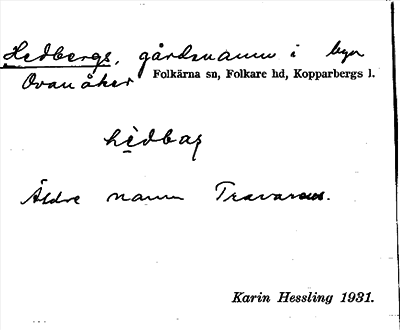 Hedbergs, gårdsnamn i byn
Ovanåker Folkärna sn, Folkare hd, Kopparbergs l.
Äldre namn
Karin Hessling 1931.